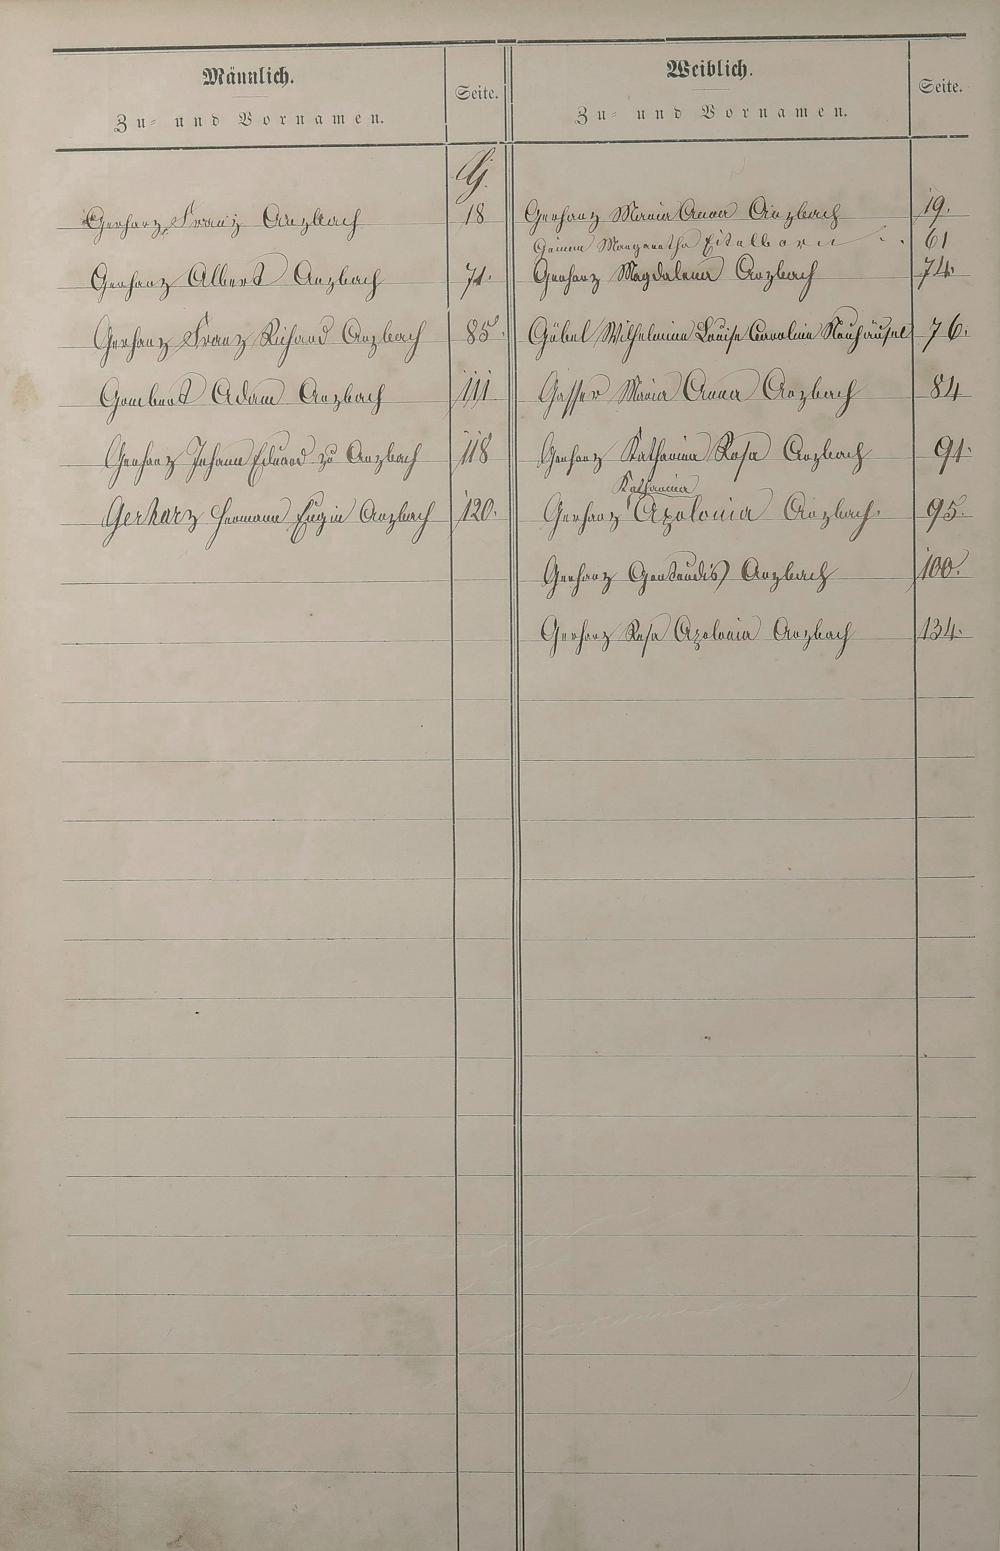 Männlich.
Zu- und Vornamen.
Seite.
Weiblich.
Zu- und Vornamen.
Seite.
G.
Gerharz Franz Arzbach 18
Gerharz Albert Arzbach 71.
Gerharz Franz Richard Arzbach 85.
Gombert Adam Arzbach 111
Gerharz Johann Eduard zu Arzbach 118
Gerharz Hermann Eugin Arzbach 120.
Gerharz Maria Anna Arzbach 19.
Margaretha Eitelborn 61
Gerharz Magdalena Arzbach 74.
Göbel Wilhelmine Louise Caroline Neuhäusel 76.
Gasser Maria Anna Arzbach 84
Gerharz Katharina Rosa Arzbach 91.
Katharina
Gerharz Apolonia Arzbach. 95.
Gerharz Gertrudis Arzbach 100.
Gerharz Rosa Apolonia Arzbach 134.